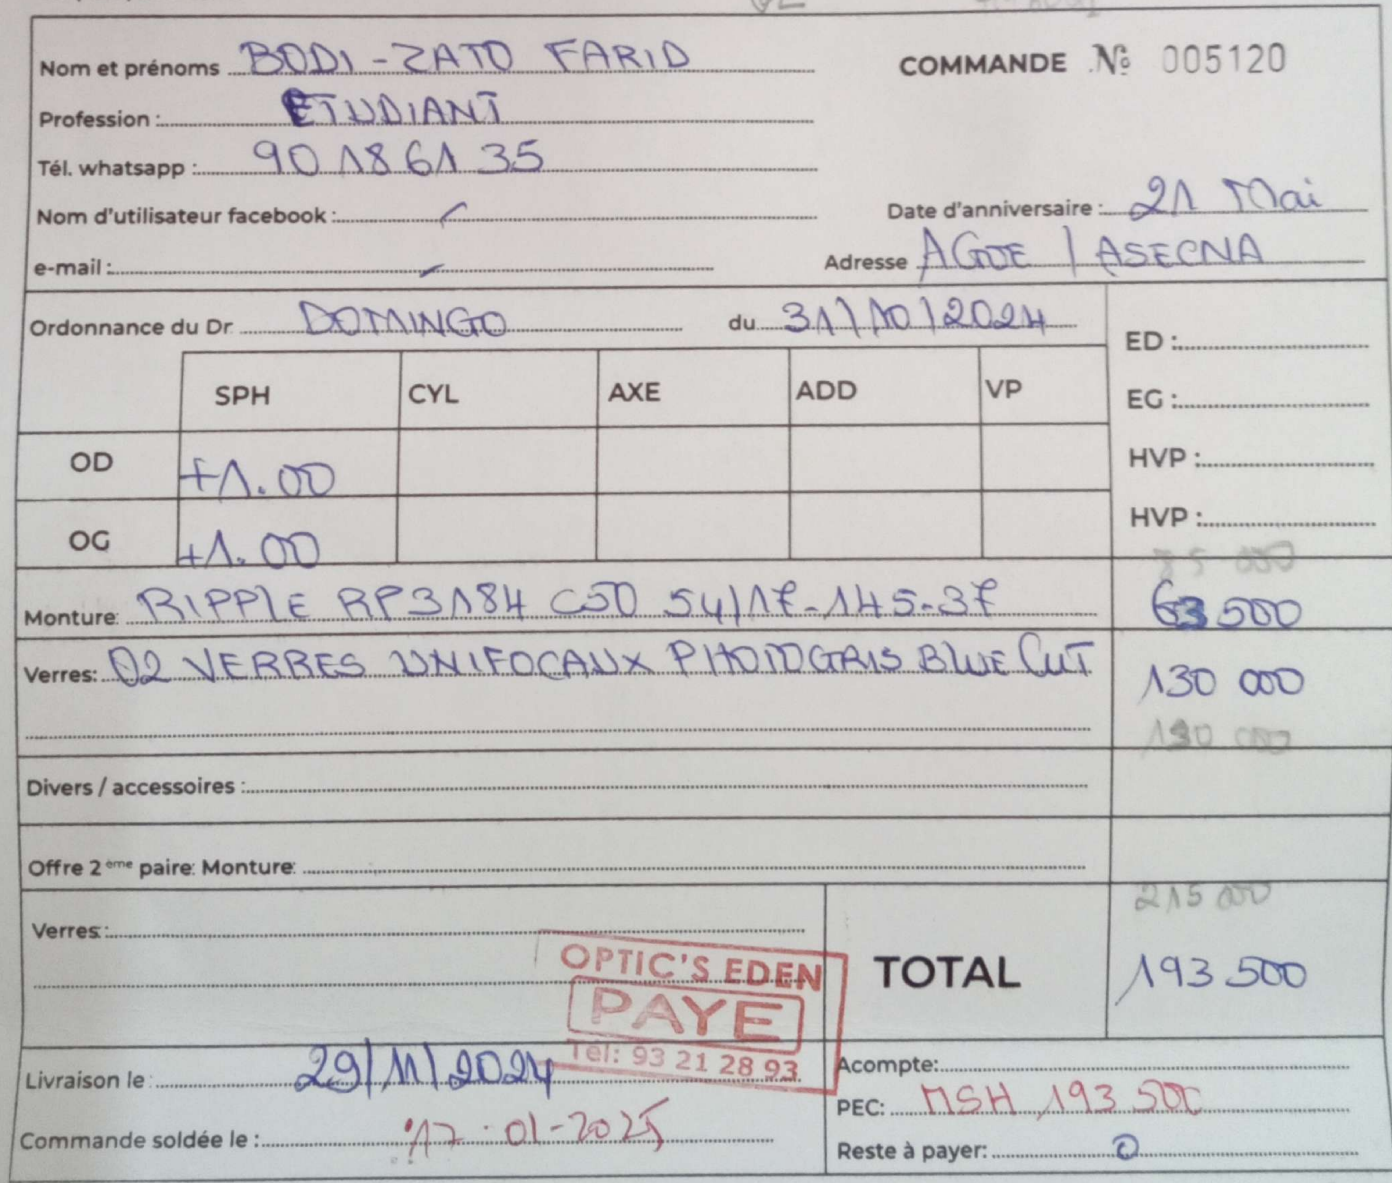 Nom et prénoms BODI-ZATO FARID
COMMANDE Nº 005120
Profession : ETUDIANT
Tél. whatsapp : 90 18 61 35
Nom d'utilisateur facebook :
Date d'anniversaire : 21 Mai
e-mail :
Adresse AGOE / ASECNA
Ordonnance du Dr DOMINGO du 31/10/2024
ED :
SPH CYL AXE ADD VP
EG :
OD +1.00
HVP :
OG +1.00
HVP :
85 000
Monture: RIPPLE RP3184 C50 54/17-145-37 63 500
Verres: 02 VERRES UNIFOCAUX PHOTOGRIS BLUE CUT 130 000
130 000
Divers / accessoires :
Offre 2 ème paire: Monture:
215 000
Verres:
TOTAL 193 500
OPTIC'S EDEN
PAYE
Tél: 93 21 28 93
Livraison le : 29/11/2024
Acompte:
PEC: MSH 193 500
Commande soldée le : 17-01-2025
Reste à payer: 0